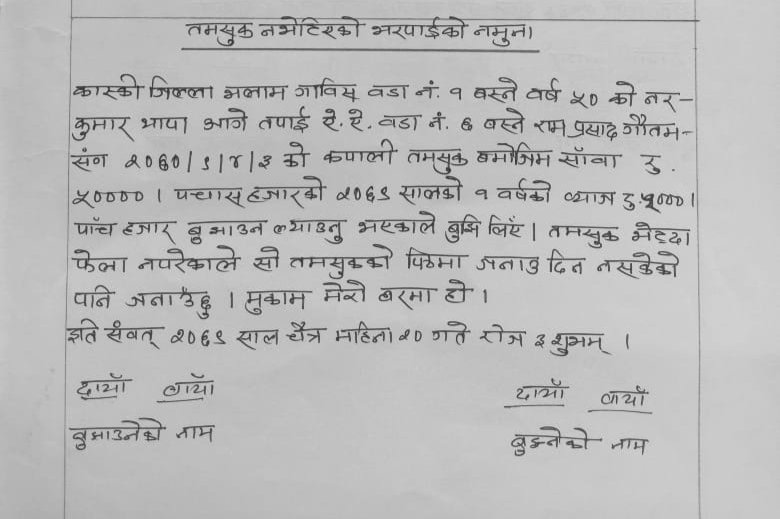 तमसुक नभेटिएको भरपाईको नमुना
कास्की जिल्ला भलाम गाविस वडा नं. १ बस्ने वर्ष ५० को नर-
कुमार थापा आगे तपाई ऐ. ऐ. वडा नं. ६ बस्ने राम प्रसाद गौतम-
संग २०६०/९/४/३ को कपाली तमसुक बमोजिम साँवा रु.
५०००० । पचास हजारको २०६९ सालको १ वर्षको ब्याज रु. ५००० ।
पाँच हजार बुझाउन ल्याउनु भएकाले बुझि लिएँ । तमसुक भेट्दा
फेला नपरेकाले सो तमसुकको पिठमा जनाउ दिन नसकेको
पनि जनाउँछु । मुकाम मेरो घरमा हो ।
इति संवत् २०६९ साल चैत्र महिना २० गते रोज ३ शुभम् ।
दायाँ बायाँ दायाँ बायाँ
बुझाउनेको नाम बुझ्नेको नाम